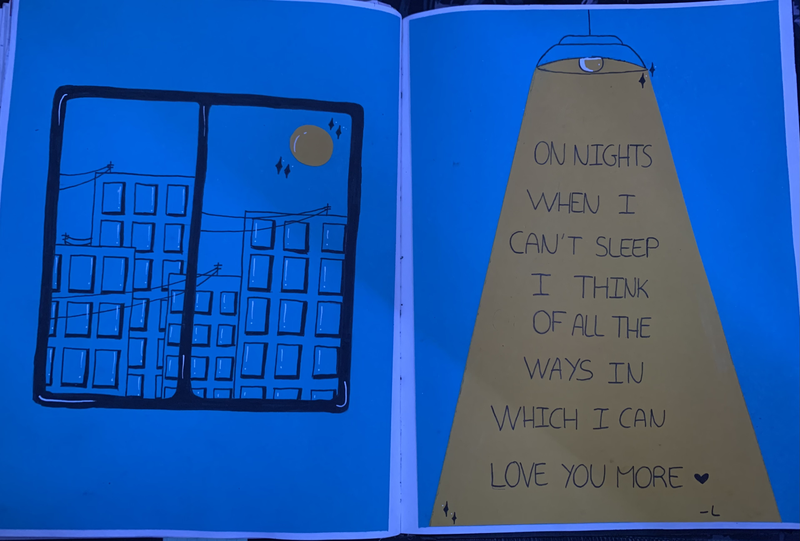 ON NIGHTS
WHEN I
CAN'T SLEEP
I THINK
OF ALL THE
WAYS IN
WHICH I CAN
LOVE YOU MORE ♥
-L